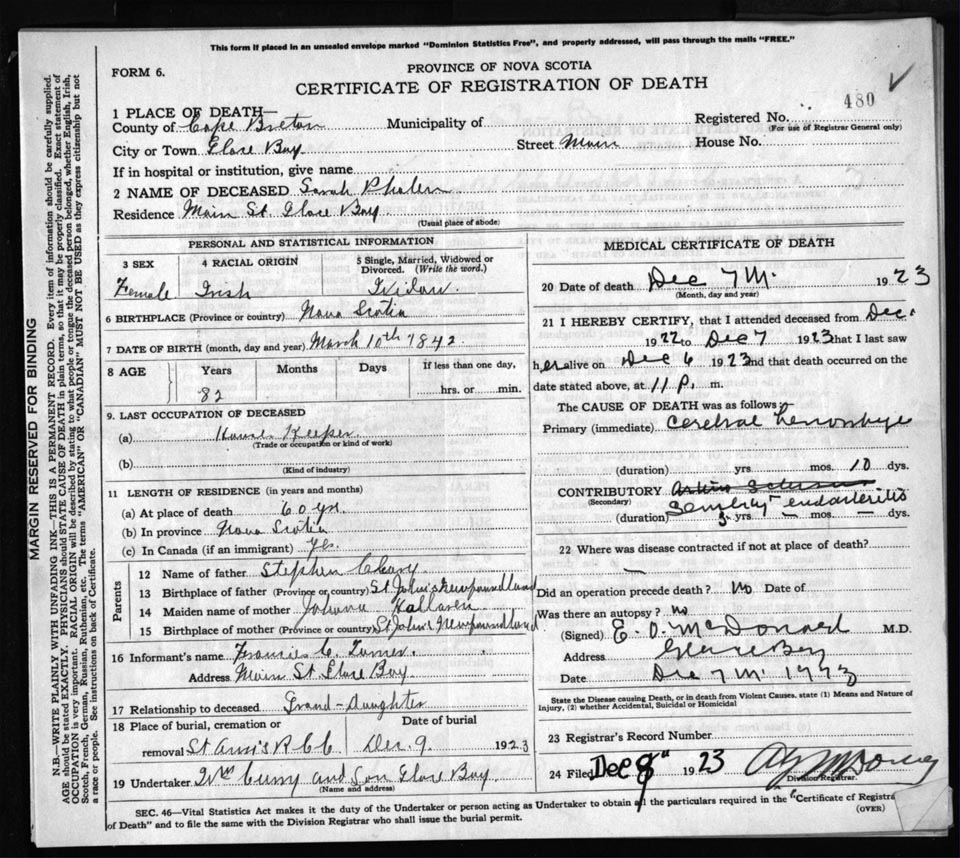 This form if placed in an unsealed envelope marked "Dominion Statistics Free", and properly addressed, will pass through the mails "FREE."
FORM 6.
PROVINCE OF NOVA SCOTIA
CERTIFICATE OF REGISTRATION OF DEATH
480
1 PLACE OF DEATH—
County of Cape Breton Municipality of Registered No.
(For use of Registrar General only)
City or Town Glace Bay Street Main House No.
If in hospital or institution, give name
2 NAME OF DECEASED Sarah Phalen
Residence Main St. Glace Bay
(Usual place of abode)
PERSONAL AND STATISTICAL INFORMATION
3 SEX 4 RACIAL ORIGIN 5 Single, Married, Widowed or Divorced. (Write the word.)
Female Irish Widow
6 BIRTHPLACE (Province or country) Nova Scotia
7 DATE OF BIRTH (month, day and year) March 10th 1842
8 AGE Years Months Days If less than one day,
82 hrs. or min.
9. LAST OCCUPATION OF DECEASED
(a) House Keeper
(Trade or occupation or kind of work)
(b)
(Kind of industry)
11 LENGTH OF RESIDENCE (in years and months)
(a) At place of death 60 yrs.
(b) In province Nova Scotia
(c) In Canada (if an immigrant) yes.
Parents
12 Name of father Stephen Cleary
13 Birthplace of father (Province or country) St John's Newfoundland
14 Maiden name of mother Johana
15 Birthplace of mother (Province or country) St John's Newfoundland
16 Informant's name Frances C. Turner
Address Main St Glace Bay
17 Relationship to deceased Grand-Daughter
18 Place of burial, cremation or Date of burial
removal St Ann's R C C Dec. 9. 1923
19 Undertaker and Son Glace Bay
(Name and address)
MEDICAL CERTIFICATE OF DEATH
20 Date of death Dec 7th 1923
(Month, day and year)
21 I HEREBY CERTIFY, that I attended deceased from Dec.
1922 to Dec 7 1923 that I last saw
her alive on Dec 6 1923 and that death occurred on the
date stated above, at 11 P. m.
The CAUSE OF DEATH was as follows:
Primary (immediate) Cerebral hemorrhage
(duration) yrs. mos. 10 dys.
CONTRIBUTORY
(Secondary) endarteritis
(duration) yrs. — mos. — dys.
22 Where was disease contracted if not at place of death?
—
Did an operation precede death? no Date of
Was there an autopsy? no
(Signed) E. O. McDonald M.D.
Address Glace Bay
Date Dec 7th 1923
State the Disease causing Death, or in death from Violent Causes, state (1) Means and Nature of Injury, (2) whether Accidental, Suicidal or Homicidal
23 Registrar's Record Number
24 Filed Dec 8th 1923
Division Registrar.
SEC. 46—Vital Statistics Act makes it the duty of the Undertaker or person acting as Undertaker to obtain all the particulars required in the "Certificate of Registra
of Death" and to file the same with the Division Registrar who shall issue the burial permit.
(OVER)
MARGIN RESERVED FOR BINDING
N.B.—WRITE PLAINLY WITH UNFADING INK—THIS IS A PERMANENT RECORD. Every item of information should be carefully supplied.
AGE should be stated EXACTLY. PHYSICIANS should STATE CAUSE OF DEATH in plain terms, so that it may be properly classified. Exact statement of
OCCUPATION is very important. RACIAL ORIGIN will be described by stating to what people or tongue the deceased person belonged, whether English, Irish,
Scotch, French, German, Russian, Ruthenian, etc. The terms "AMERICAN" or "CANADIAN" MUST NOT BE USED as they express citizenship but not
a race or people. See instructions on back of Certificate.